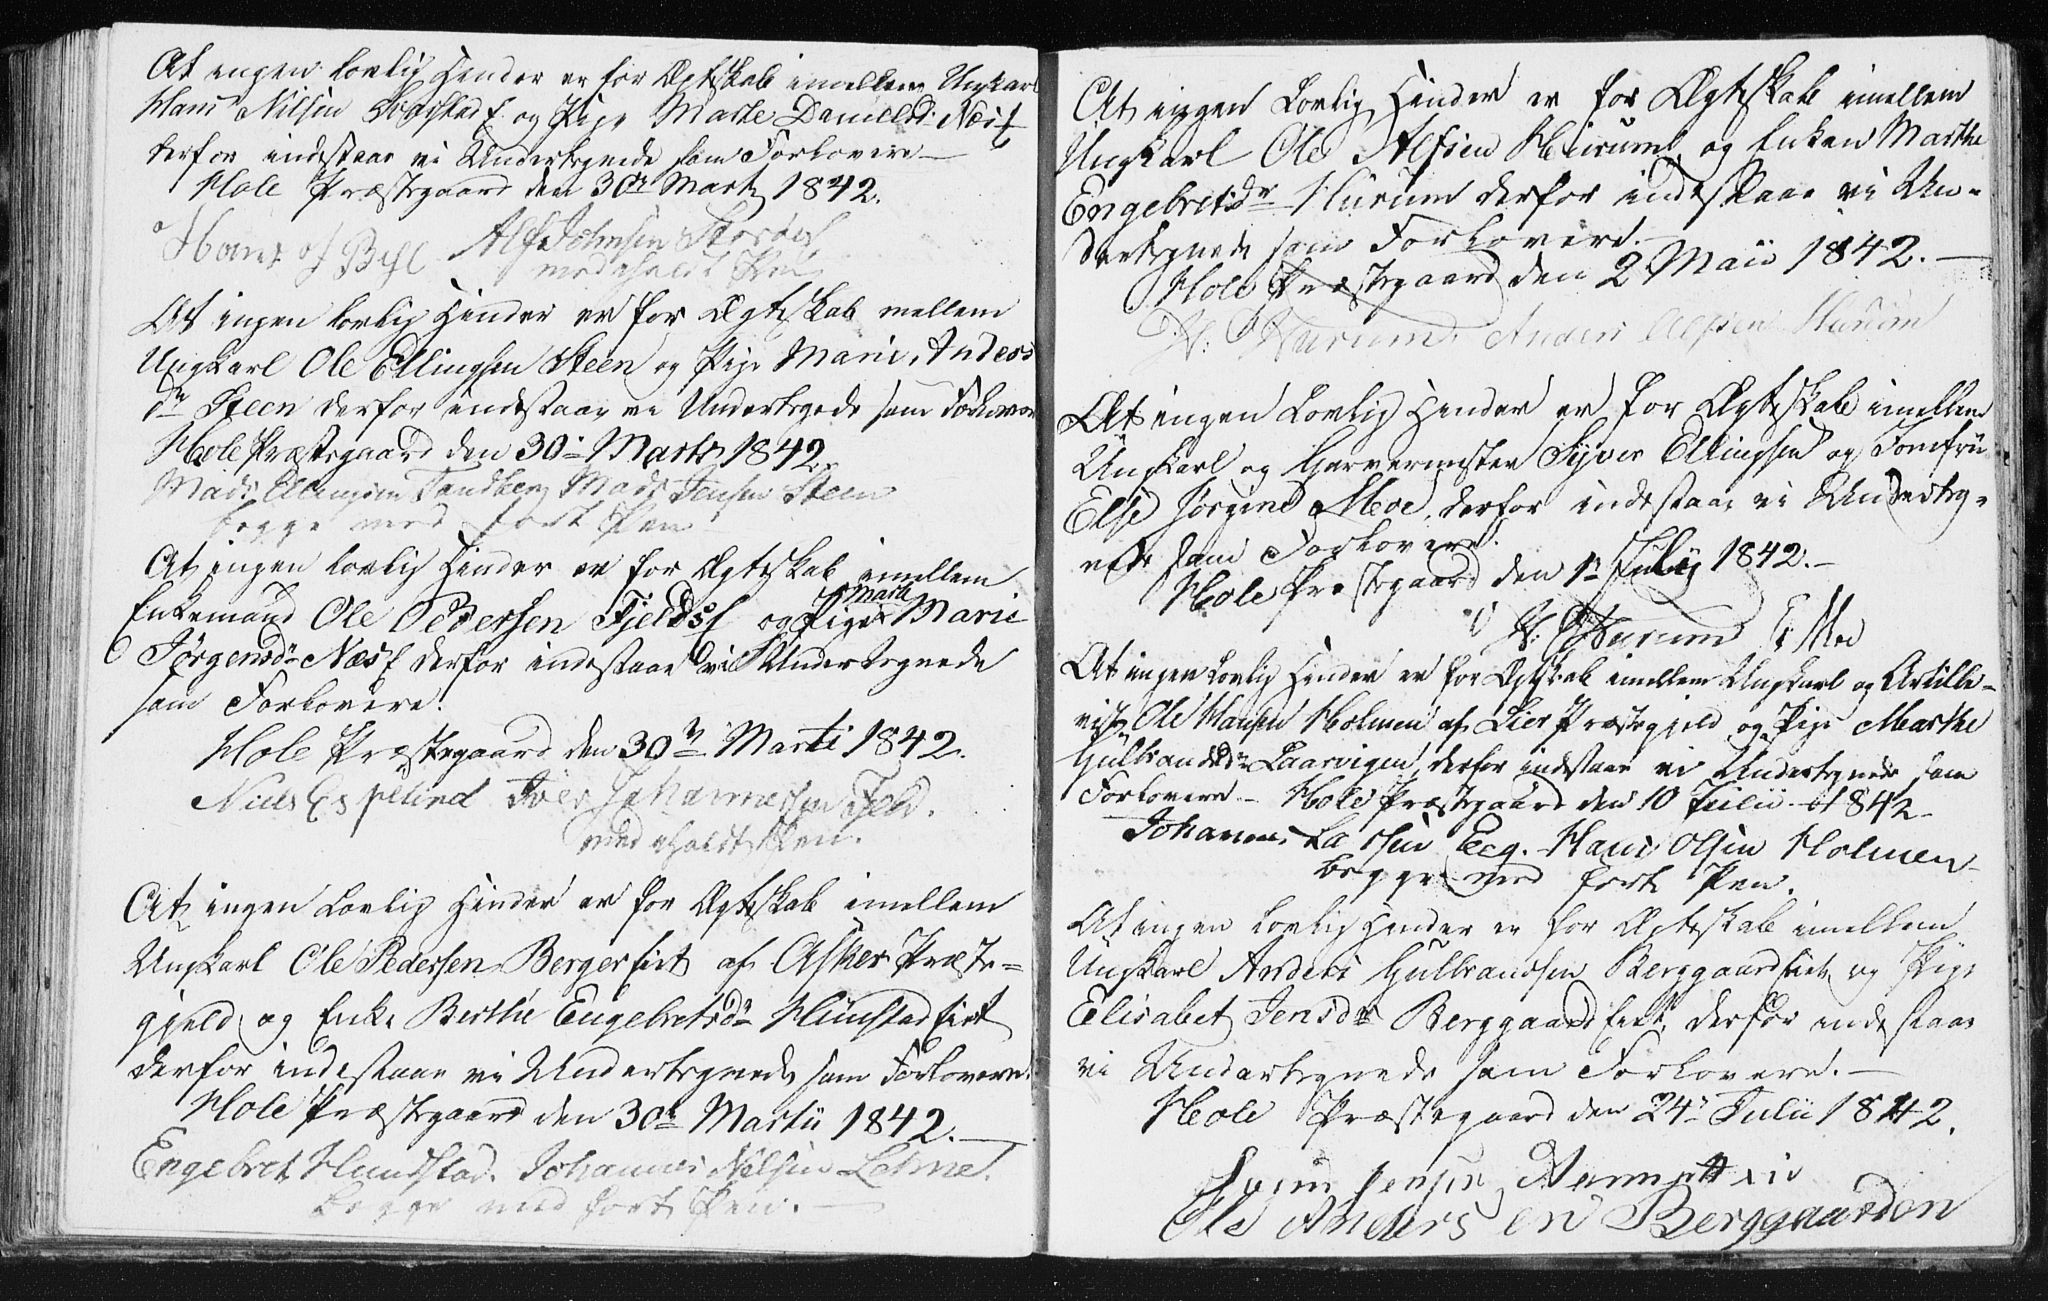 At ingen lovlig Hinder er for Ægteskab imellem Ungkarl
Hans Nilsen og Pige Marte Danielsd: Næs
derfor indestaae vi Undertegnede som Forlovere
Hole Præstegaard den 30te Marti 1842.
Alf Johnsen
med holdt Pen
At ingen lovlig Hinder er for Ægteskab mellem
Ungkarl Ole Ellingsen Steen og Pige Marie Anders
dr Steen derfor indestaae vi Undertegnede som Forlover
Hole Præstegaard den 30te Marti 1842
Mads Ellingsen Tandberg Mads Jensen Steen
begge med ført Pen
At ingen lovlig Hinder er for Ægteskab imellem
Enkemand Ole Pedersen og Pige Marie
Jørgensdr Næs derfor indestaae vi Undertegnede
som Forlovere.
Hole Præstegaard den 30te Marti 1842.
Niels Espelind Iver Johannessen Fjeld.
med holdt Pen.
At ingen Lovlig Hinder er for Ægteskab imellem
Ungkarl Ole Pedersen Bergerseiet af Asker Præste=
gjeld og Enke Berthe Engebretsdr Hundstadeiet
derfor indestaae vi Undertegnede som Forlovere.
Hole Præstegaard den 30te Martii 1842.
Engebret Hundstad. Johannes Nilsen
begge med ført Pen.
At ingen Lovlig Hinder er for Ægteskab imellem
Ungkarl Ole Alfsen Hurum og Enken Marthe
Engebretsdr Hurum derfor indestaae vi Un=
dertegnede som Forlovere.
Hole Præstegaard den 2 Maii 1842.
H: Hurum Anders Alfsen Hurum
At ingen Lovlig Hinder er for Ægteskab imellem
Ungkarl og Garvermester Syver Ellingsen og Jomfru
Else Jørgine Moe, derfor indestaae vi Underteg=
nede som Forlovere.
Hole Præstegaard den 1te July 1842.
H: Hurum Moe
At ingen Lovlig Hinder er for Ægteskab imellem Ungkarl og Artille=
rist Ole Hansen Holmen af Lier Præstegjeld og Pige Marthe
Gulbrandsdr Laarvigen, derfor indestaae vi Undertegnede som
Forlovere Hole Præstegaard den 10 Julii 1842
Johannes Larsen Hans Olsen Holmen
begge med ført Pen.
At ingen lovlig Hinder er for Ægteskab imellem
Ungkarl Anders Gulbrandsen Berggaardseiet og Pige
Elisabet Jensdr Berggaardseiet, derfor indestaae
vi Undertegnede som Forlovere.
Hole Præstegaard den 24te Julii 1842.
Jensen
Ole Andersen Berggaarden